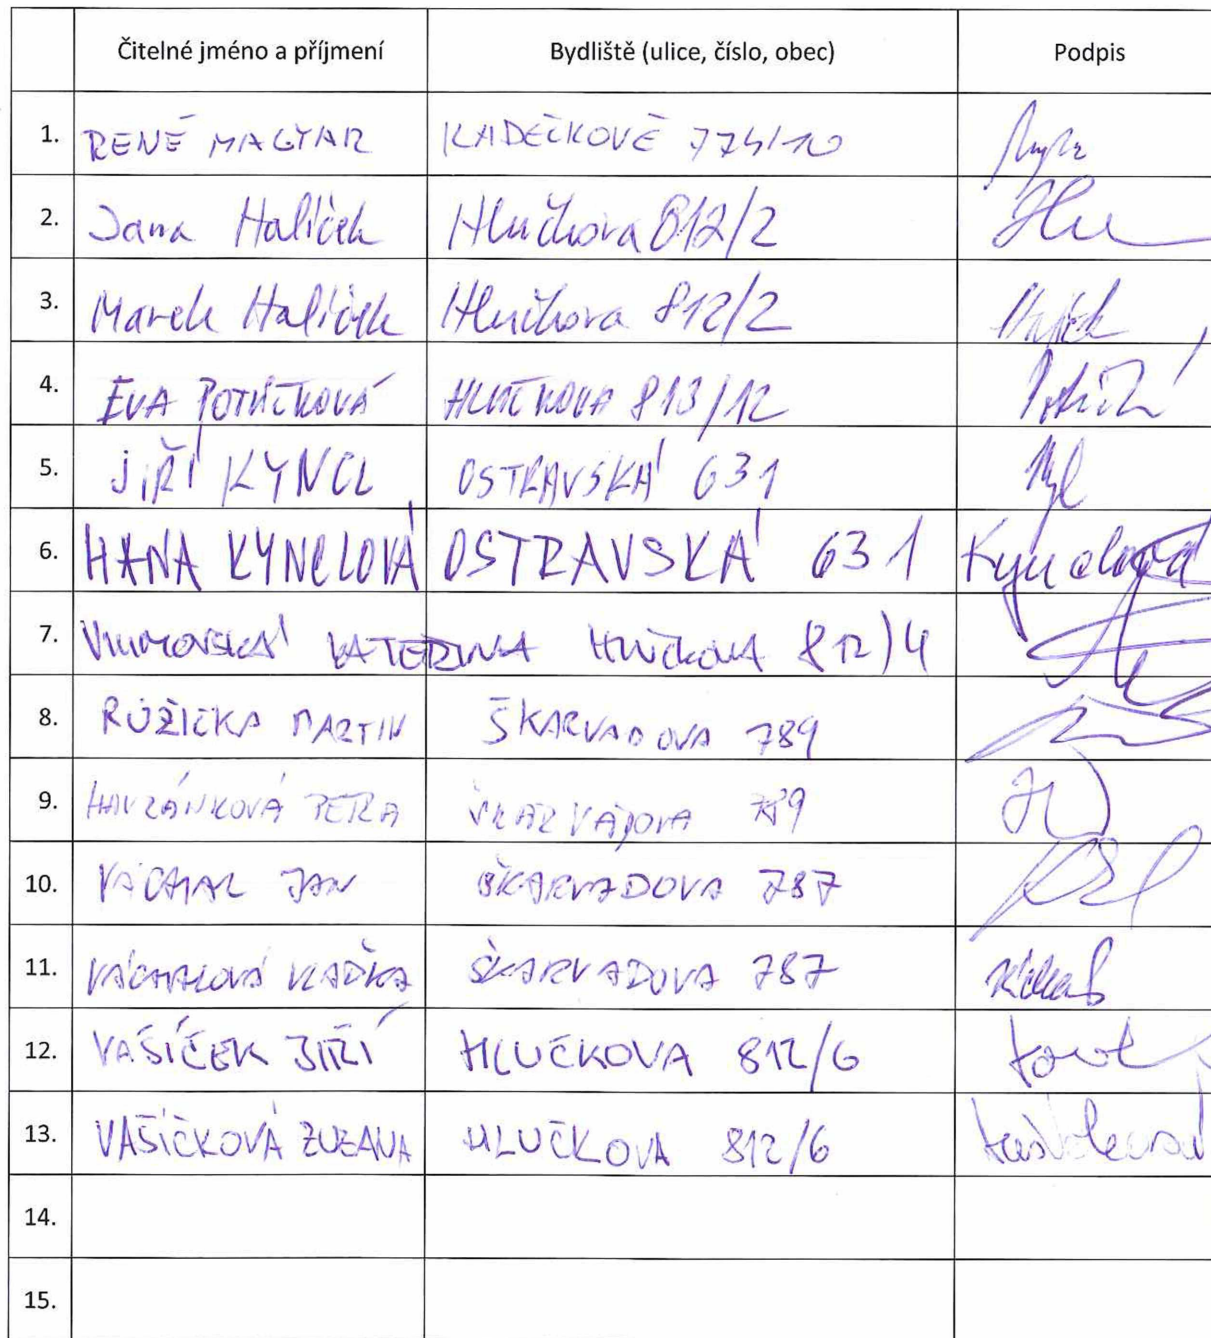 Čitelné jméno a příjmení Bydliště (ulice, číslo, obec) Podpis
1. RENÉ MAGYAR KADEČKOVĚ 774/10
2. Jana Halíček Hlučkova 812/2
3. Marek Halíček Hlučkova 812/2
4. EVA POTŮČKOVÁ HLUČKOVA 813/12
5. JIŘÍ KYNCL OSTRAVSKÁ 631
6. HANA KYNCLOVÁ OSTRAVSKÁ 631 Kynclová
7. KATEŘINA HLUČKOVA 812/4
8. RŮŽIČKA MARTIN ŠKARVADOVA 789
9. HAVRÁNKOVÁ PETRA ŠKARVADOVA 789
10. VÁCHAL JAN ŠKARVADOVA 787
11. VÁCHALOVÁ VLAĎKA ŠKARVADOVA 787
12. VAŠÍČEK JIŘÍ HLUČKOVA 812/6
13. VAŠÍČKOVÁ ZUZANA HLUČKOVA 812/6
14.
15.